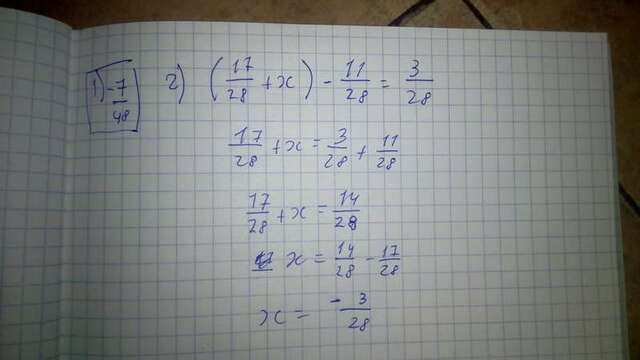 1) -7/48 2) (17/28 + x) - 11/28 = 3/28
17/28 + x = 3/28 + 11/28
17/28 + x = 14/28
x = 14/28 - 17/28
x = -3/28